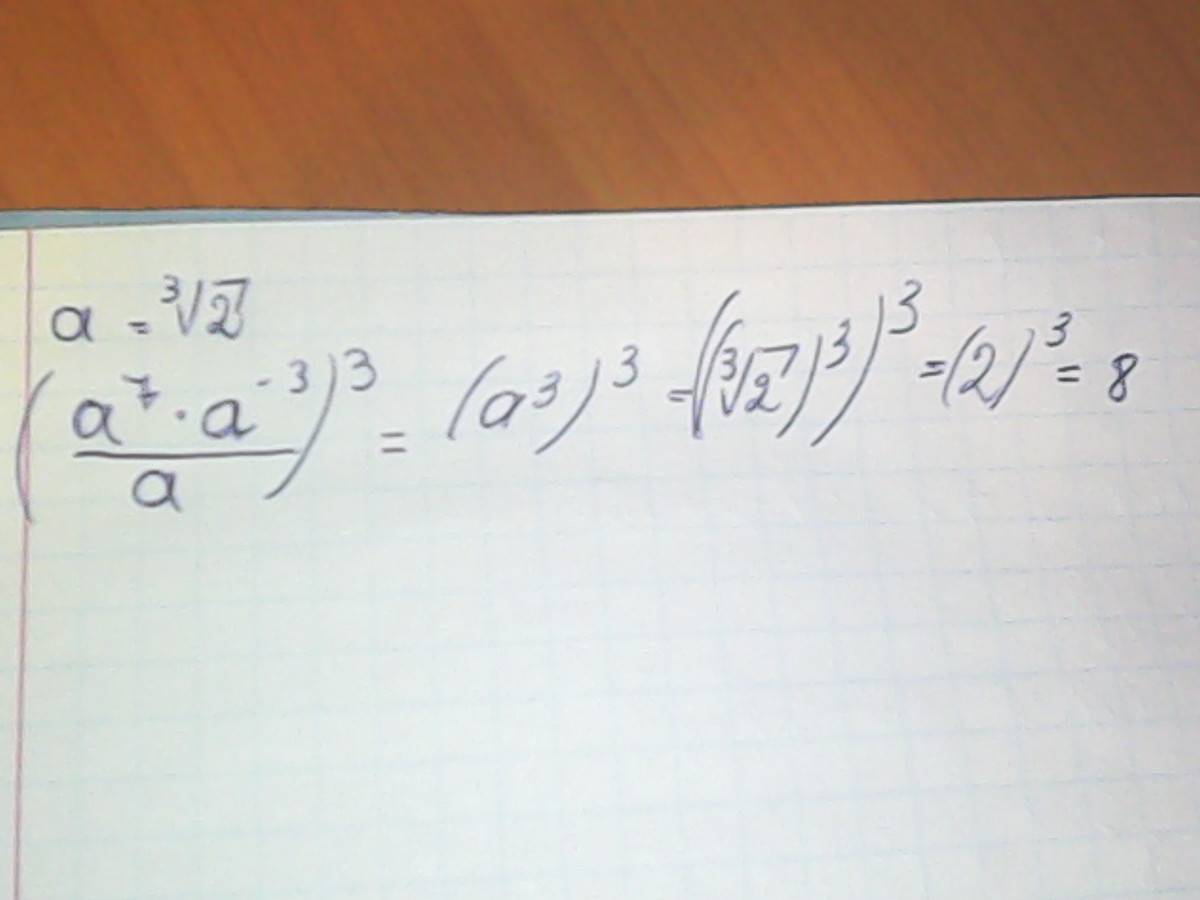 a = ∛2
(a⁷ · a⁻³ / a)³ = (a³)³ = ((∛2)³)³ = (2)³ = 8